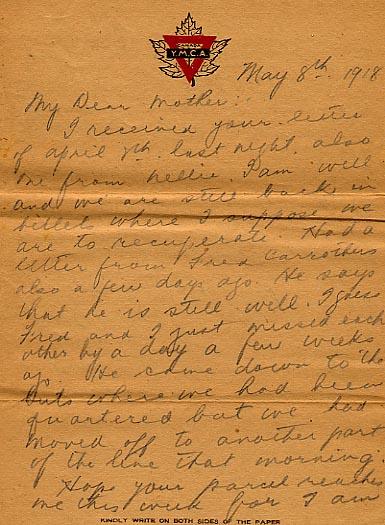 Y.M.C.A.
May 8th 1918
My Dear Mother:
I received your letter
of april 7th last night also
one from nellie. I am well
and we are still back in
billets where I suppose we
are to recuperate. Had a
letter from Fred Carrothers
also a few days ago. He says
that he is still well. I guess
Fred and I just missed each
other by a day a few weeks
ago. He came down to the
huts where we had been
quartered but we had
moved off to another part
of the line that morning.
Hope your parcel reaches
me this week for I am
KINDLY WRITE ON BOTH SIDES OF THE PAPER